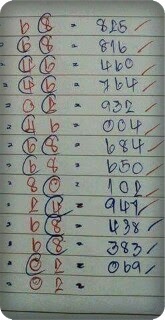 68 = 825 ✓
" 68 = 816 ✓
" 46 = 460 ✓
" 46 = 764 ✓
= 02 = 932 ✓
" 46 = 004 ✓
" 68 = 684 ✓
" 68 = 650 ✓
" 80 = 102 ✓
" = 947 ✓
" 68 = 438 ✓
" 68 = 383 ✓
= 02 = 069 ✓
= 02 =